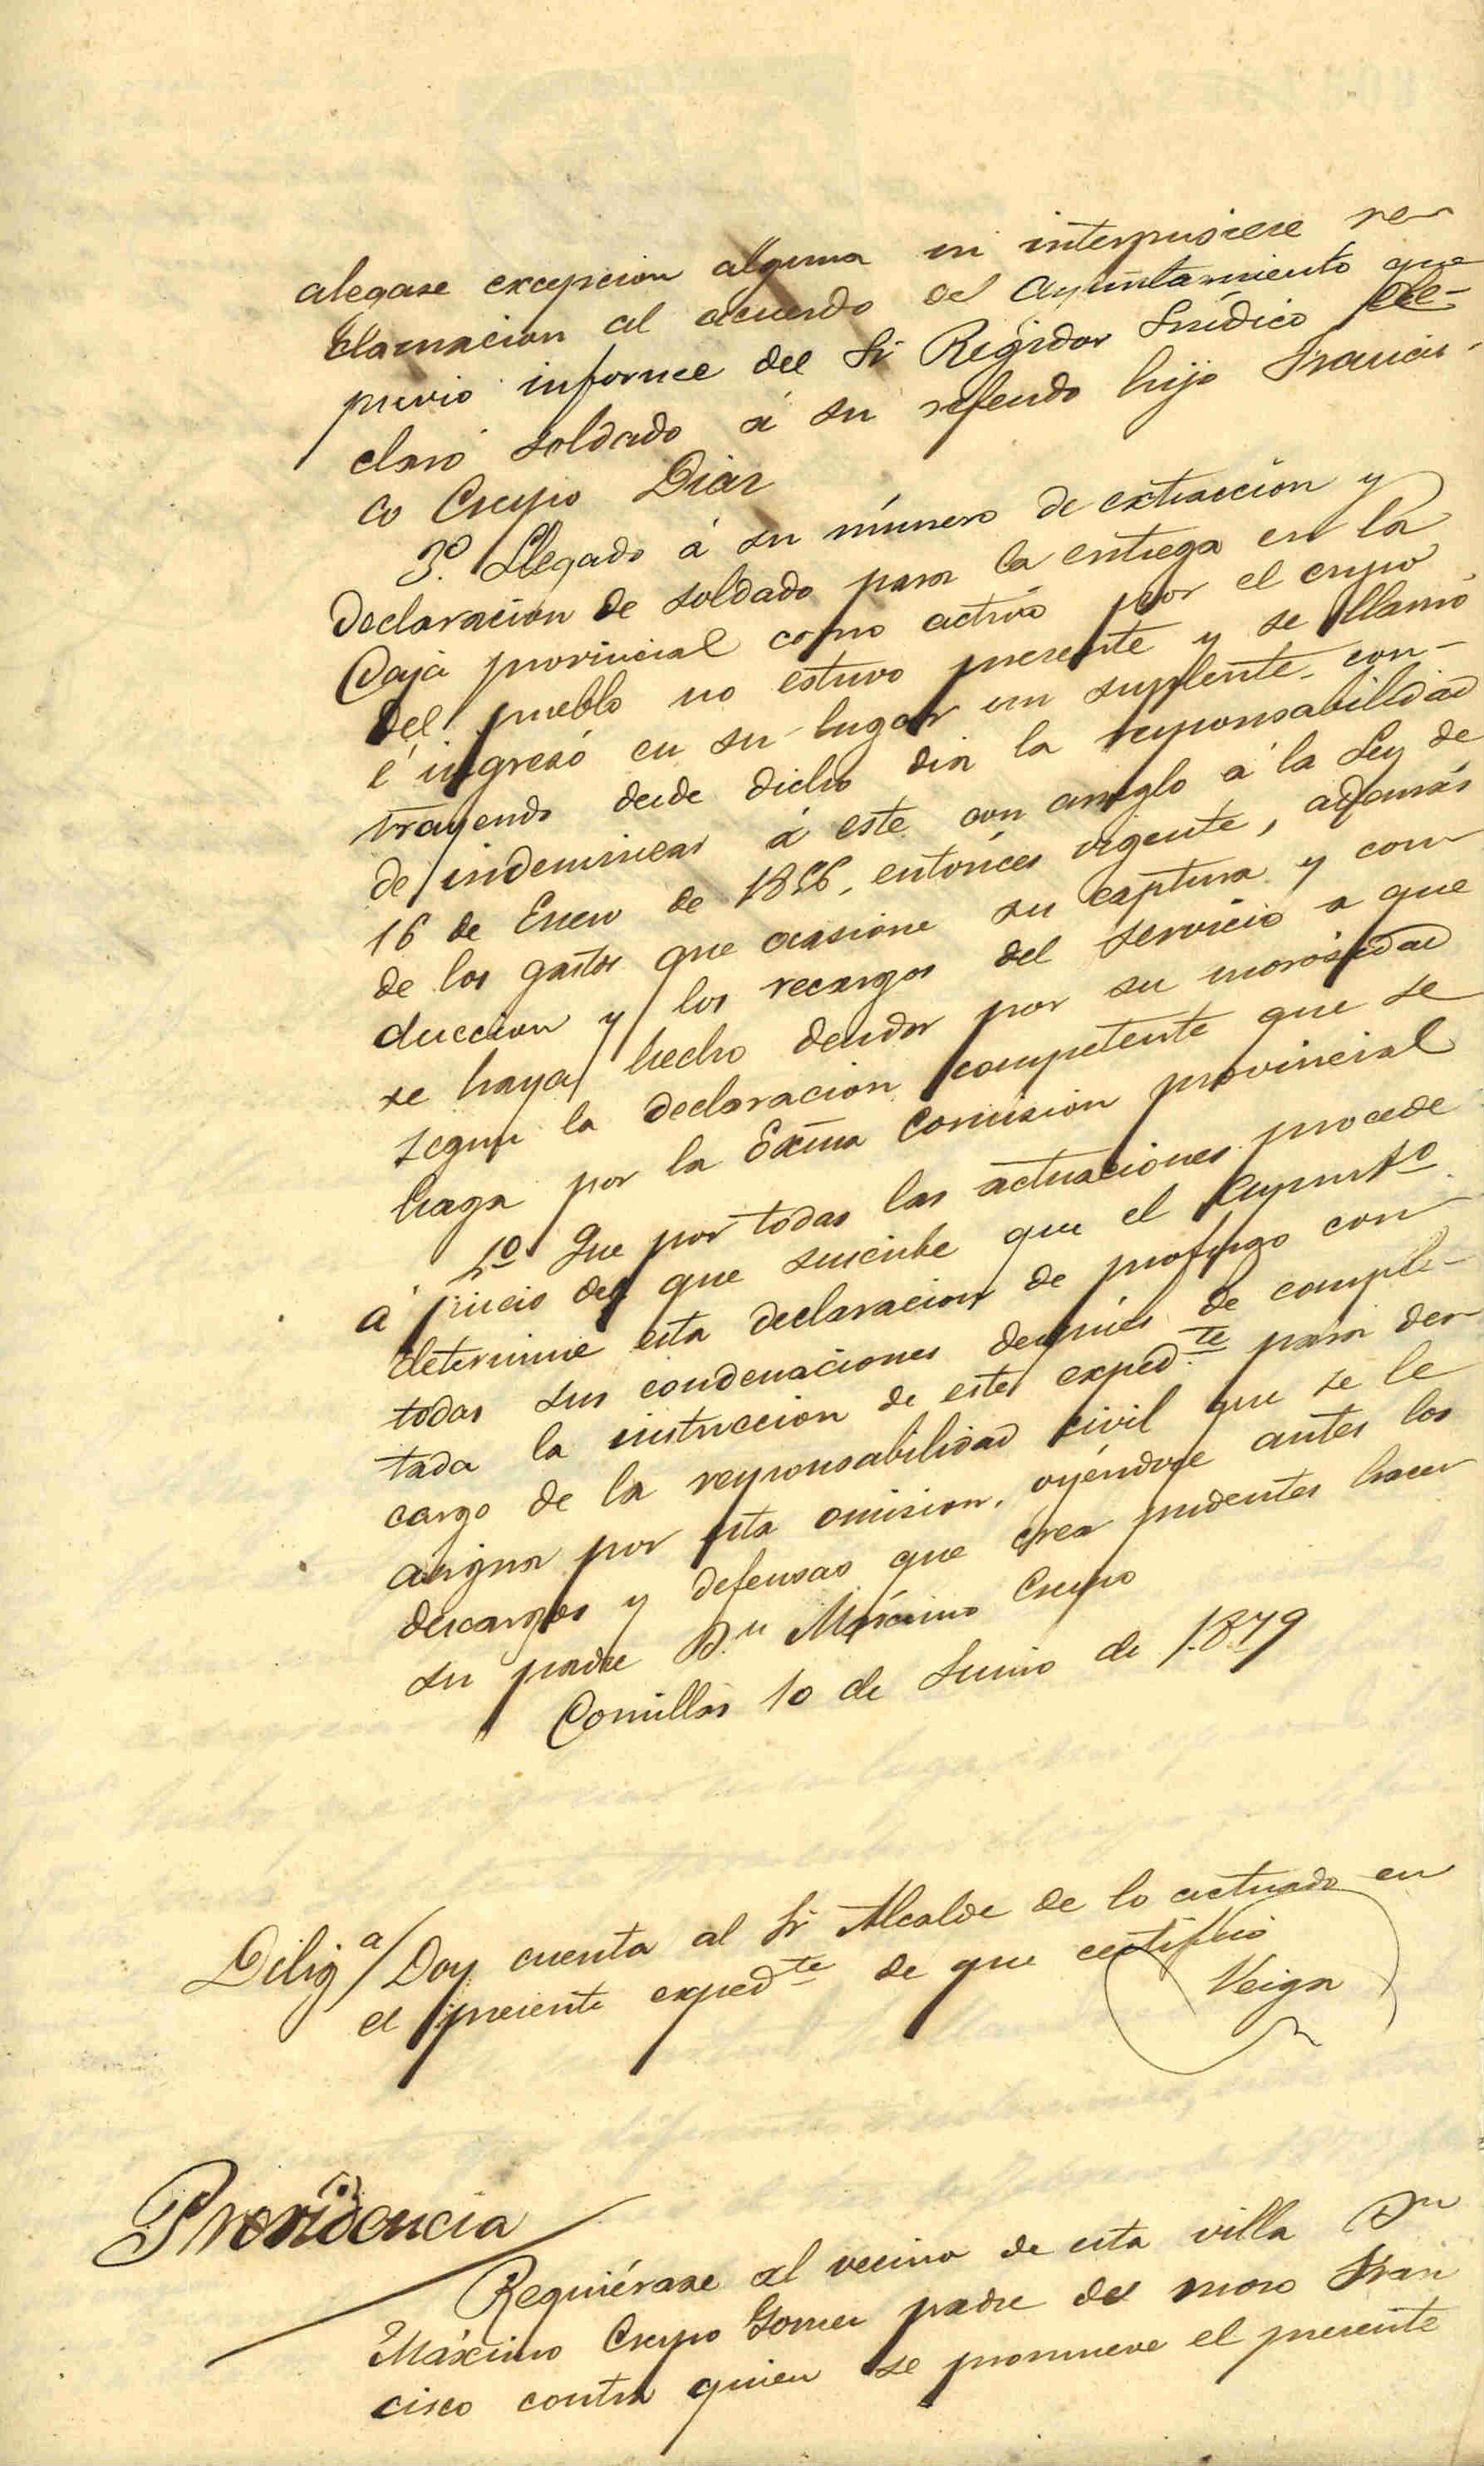 alegase excepcion alguna ni interpusiese re-
clamacion al acuerdo del Ayuntamiento que
previo informe del Sr Regidor Síndico de-
claró soldado á su referido hijo Francis-
co Crespo Diaz
3º. Llegado á su número de extraccion y
declaracion de soldado para la entrega en la
Caja provincial como activo por el cupo
del pueblo no estuvo presente y se llamó
é ingresó en su lugar un suplente con-
trayendo desde dicho dia la responsabilidad
de indemnizar á este con arreglo á la Ley de
16 de Enero de 1856, entónces vigente, además
de los gastos que ocasione su captura y con-
duccion y los recargos del servicio a que
se haya hecho deudor por su morosidad
segun la declaracion competente que se
haga por la Exma Comision provincial
4º Que por todas las actuaciones procede
á juicio del que suscribe que el Ayuntº
determine esta declaracion de prófugo con
todas sus condenaciones después de comple-
tada la instruccion de este expedte para des
cargo de la responsabilidad civil que se le
asigna por esta omision, oyéndose antes los
descargos y defensas que crea prudentes hacer
su padre Dn Máximo Crespo
Comillas 10 de Junio de 1.879
Diliga/ Doy cuenta al Sr Alcalde de lo actuado en
el presente expedte de que certifico
Veiga
Providencia
Requiérase al vecino de esta villa Dn
Máximo Crespo Gomez padre del mozo Fran
cisco contra quien se promueve el presente